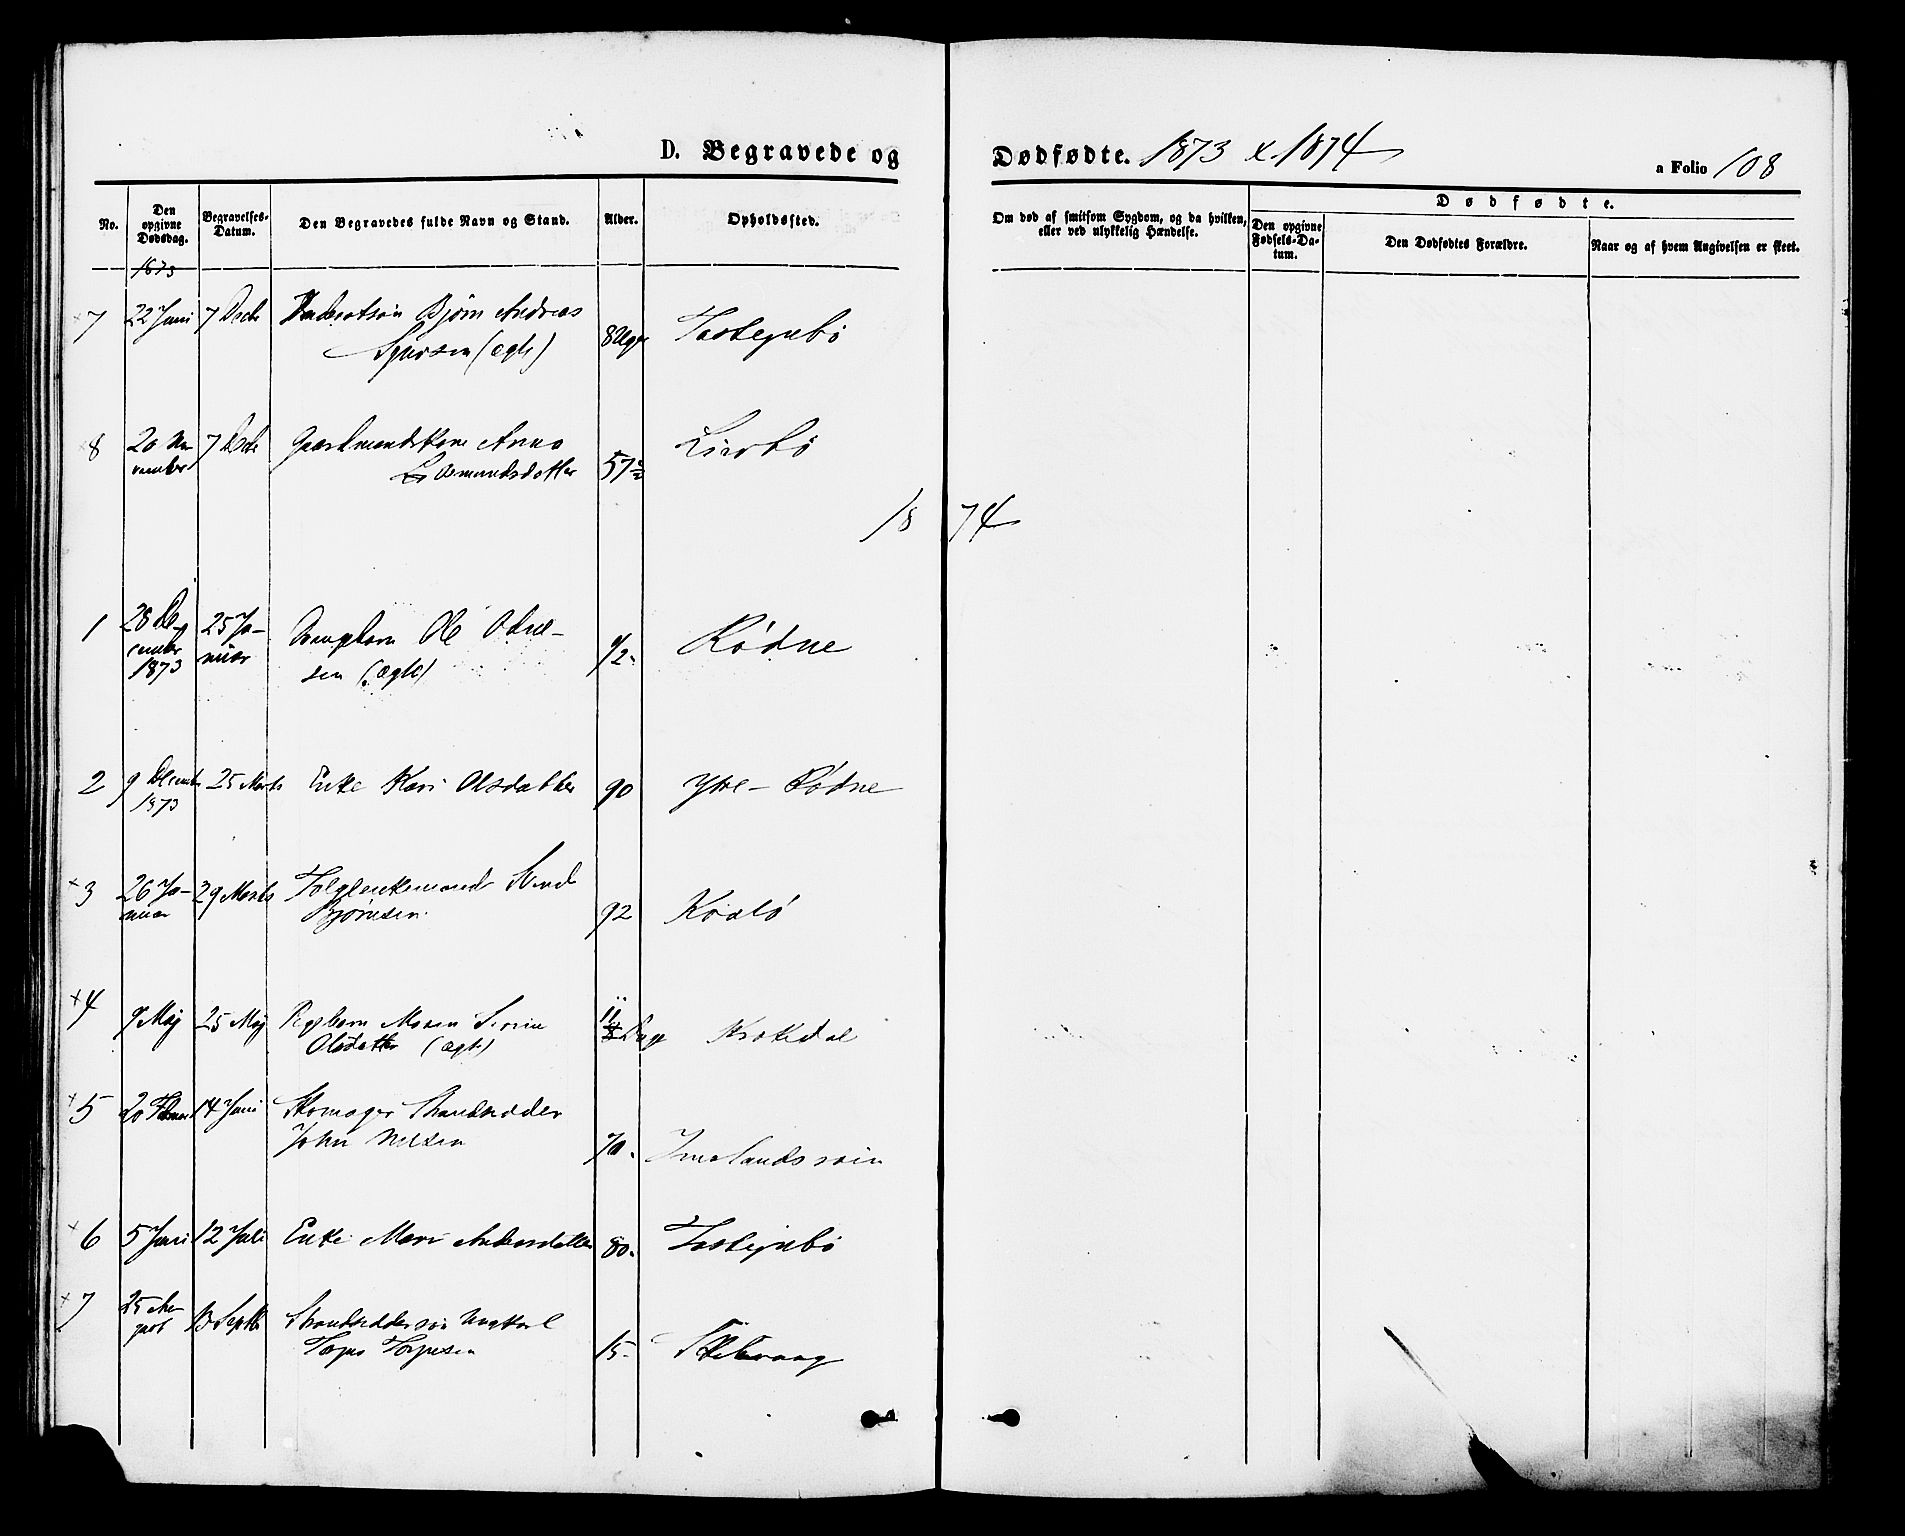 D. Begravede og Dødfødte. 1873 & 1874
a Folio 108
No.
Den opgivne Dødsdag.
Begravelses-Datum.
Den Begravedes fulde Navn og Stand.
Alder.
Opholdssted.
Om død af smitsom Sygdom, og da hvilken,
eller ved ulykkelig Hændelse.
Dødfødte.
Den opgivne Fødsels-Datum.
Den Dødfødtes Forældre.
Naar og af hvem Angivelsen er skeet.
1873
7 22 Juni 7 Decbr Bjørn Andreas
Sjursen (ægte) 8 Uger Tasteynbø
8 20 No 7 Decbr Gaardmandskone Anna
vember Asmundsdatter 57
1874
1 28 De 25 Ja- Drengebarn Ole Odne-
cember nuar sen (ægte) 1/2 Rødne
1873
2 9 December 25 Marts Enke Kari Olsdatter 90 Ytre-Rødne
1873
3 26 Ja- 29 Marts
nuar Bjørnsen 92
4 9 Maj 25 Maj Pigebarn Maren Serine
Olsdatter (ægte) 11 Dage Krokedal
5 20 14 Juni Skomager Strandsidder
John Nilsen 70 Imslandssøin
6 5 Juni 12 Juli Enke Mari Andersdatter 80 Tasteynbø
7 25 Au- 13 Septbr Strandsiddersøn Ungkarl
gust 15